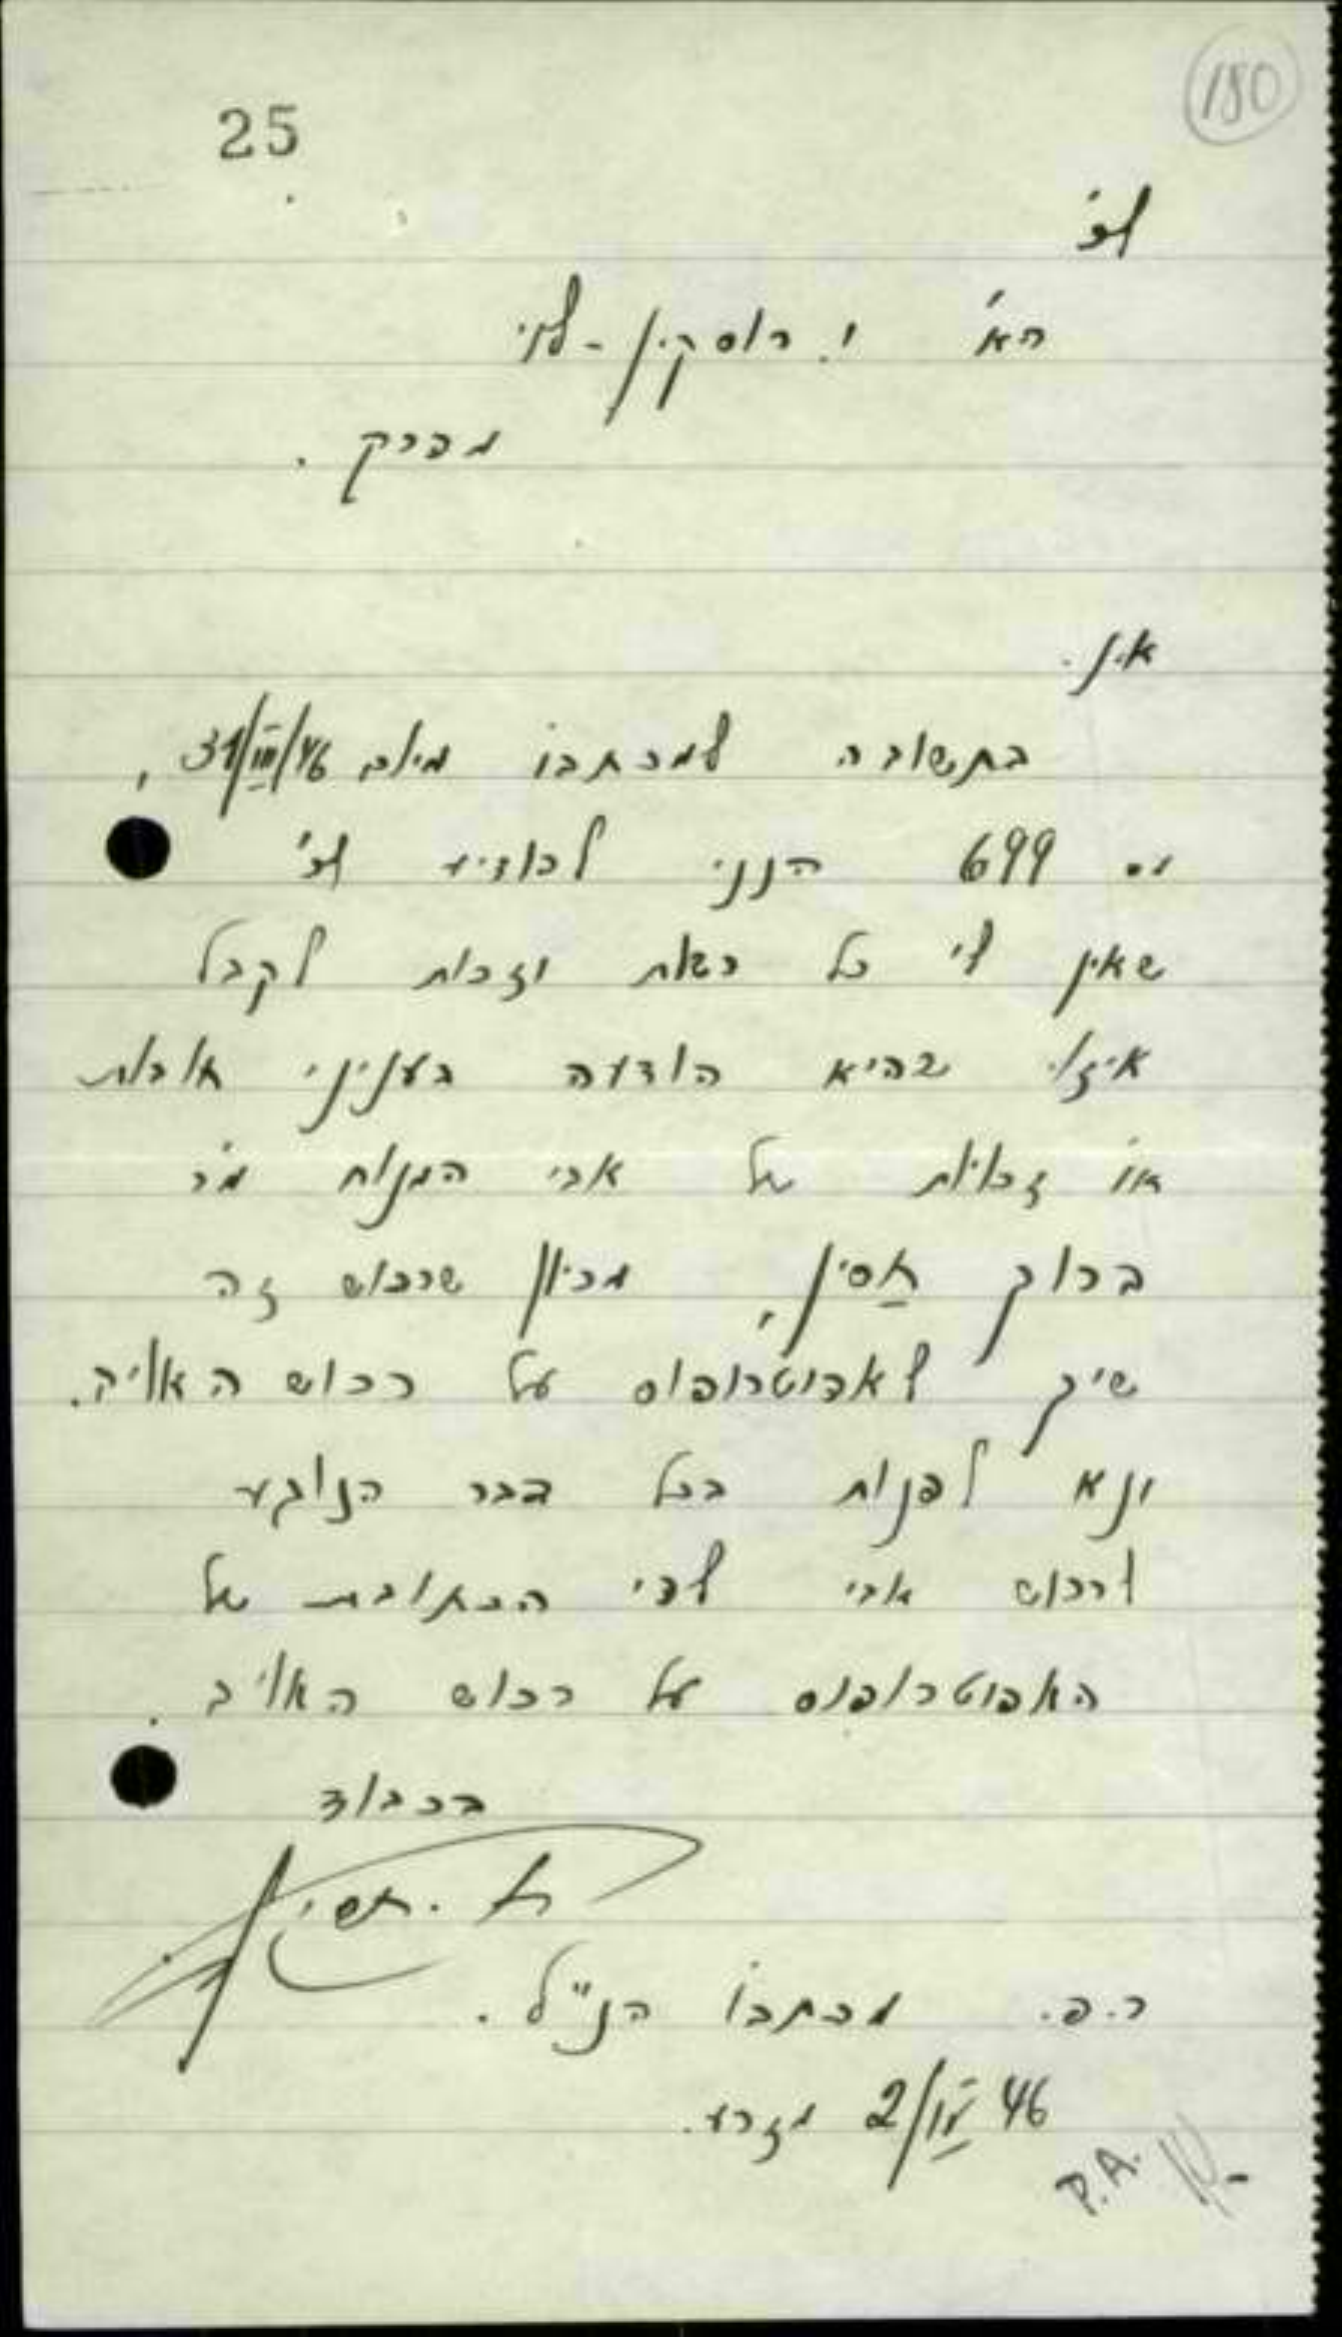 180
25
לכ'
הא' י. רוסקין-לוי
מברק.
א.נ.
בתשובה למכתבו מיום 31/III/46,
מס 699 הנני להודיע לכ'
שאין לי כל רשות וזכות לקבל
איזו שהיא הודעה בעניני חובות
או זכויות של אבי המנוח מר
ברוך חסין, מכיון שרכוש זה
שיך לאפוטרופוס על רכוש האויב.
ונא לפנות בכל דבר הנוגע
לרכוש אבי לפי הכתובת של
האפוטרופוס על רכוש האויב.
בכבוד
ר.פ. מכתבו הנ"ל.
2/IV 46 מזרע.
P.A.